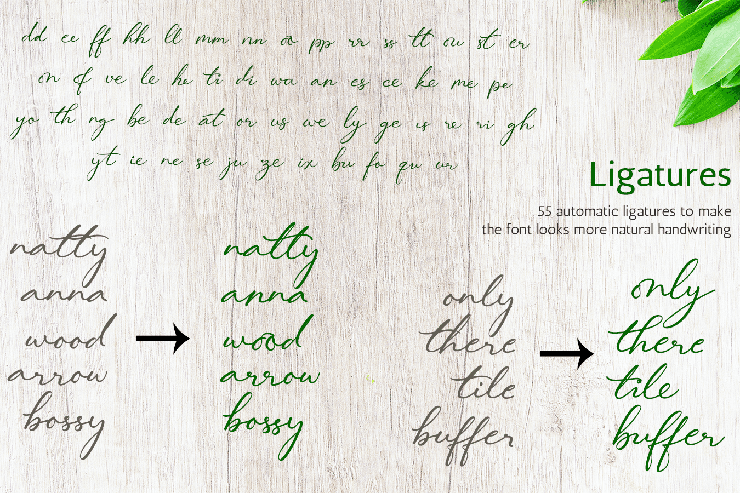 dd ee ff hh ll mm nn oo pp rr ss tt ou st er
on of ve le he ti di wa an es ce ke me pe
yo th ng be de at or us we ly ge is re ri gh
yt ie ne se ju ze ix bu fo qu ur
Ligatures
55 automatic ligatures to make
the font looks more natural handwriting
natty natty
anna anna
wood wood
arrow arrow
bossy bossy
only only
there there
tile tile
buffer buffer